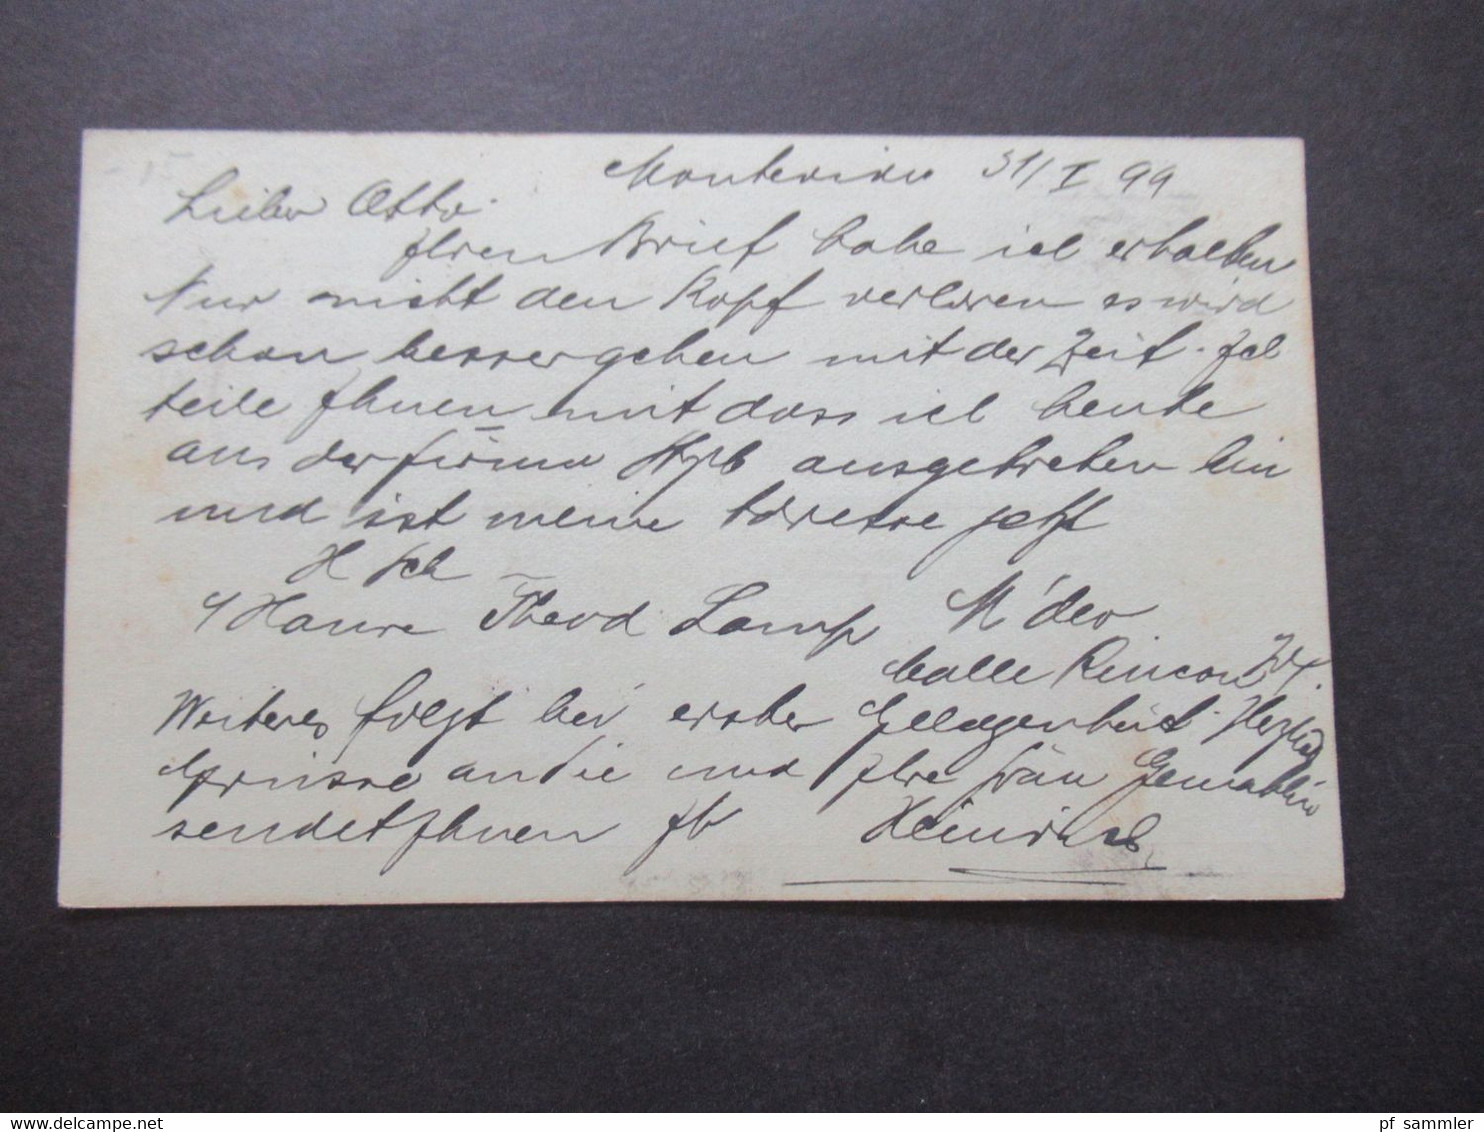 Montevideo 31/I 99
Lieber Otto.
Ihren Brief habe ich erhalten
Nur nicht den Kopf verloren es wird
schon besser gehen mit der Zeit. Ich
teile Ihnen mit dass ich heute
aus der Firma ausgetreten bin
und ist meine Adresse jetzt
H
Theod Lamp M'deo
Calle Rincon
Weiteres folgt bei erster Gelegenheit. Herzl
Grüsse an Sie und Ihre Frau Gemahlin
sendet Ihnen Ihr Heinrich
www.delcampe.net
pf_sammler